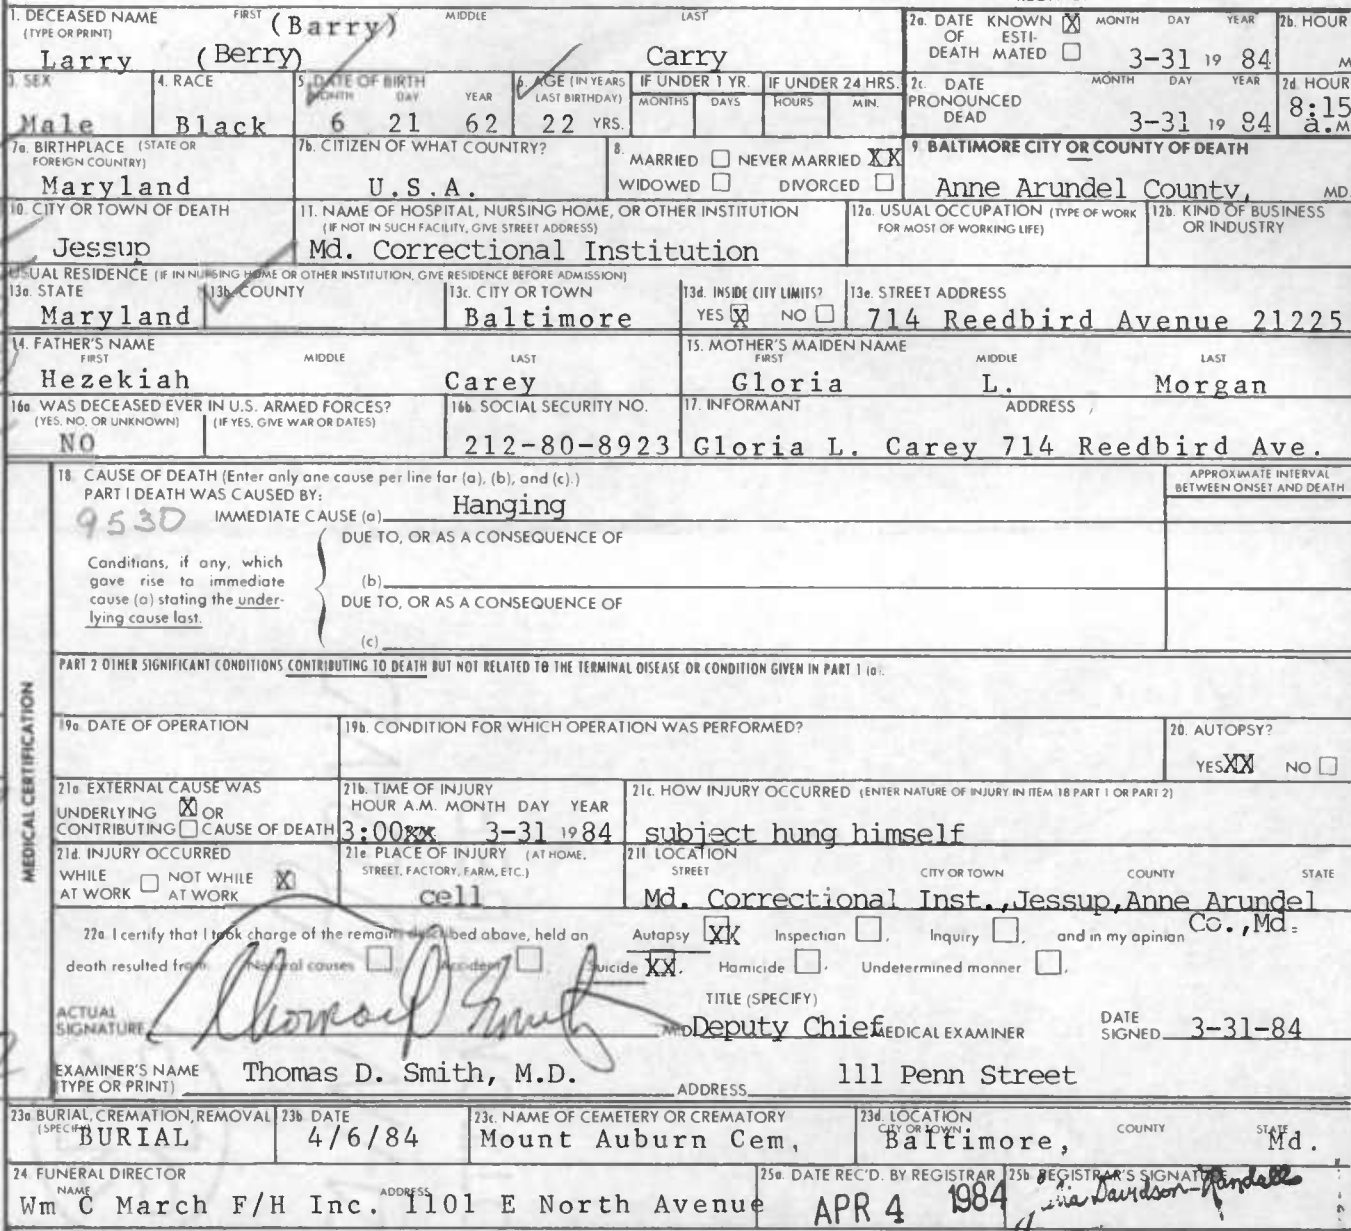 1. DECEASED NAME FIRST (Barry) MIDDLE LAST
(TYPE OR PRINT)
Larry (Berry) Carry
2a. DATE OF DEATH KNOWN X ESTIMATED MONTH DAY YEAR
3-31 19 84
2b. HOUR
M
3. SEX
Male
4. RACE
Black
5. DATE OF BIRTH
MONTH DAY YEAR
6 21 62
6. AGE (IN YEARS LAST BIRTHDAY)
22 YRS.
IF UNDER 1 YR.
MONTHS DAYS
IF UNDER 24 HRS.
HOURS MIN.
2c. DATE PRONOUNCED DEAD MONTH DAY YEAR
3-31 19 84
2d. HOUR
8:15
a.M
7a. BIRTHPLACE (STATE OR FOREIGN COUNTRY)
Maryland
7b. CITIZEN OF WHAT COUNTRY?
U.S.A.
8. MARRIED NEVER MARRIED XX
WIDOWED DIVORCED
9. BALTIMORE CITY OR COUNTY OF DEATH
Anne Arundel County, MD.
10. CITY OR TOWN OF DEATH
Jessup
11. NAME OF HOSPITAL, NURSING HOME, OR OTHER INSTITUTION
(IF NOT IN SUCH FACILITY, GIVE STREET ADDRESS)
Md. Correctional Institution
12a. USUAL OCCUPATION (TYPE OF WORK FOR MOST OF WORKING LIFE)
12b. KIND OF BUSINESS OR INDUSTRY
USUAL RESIDENCE (IF IN NURSING HOME OR OTHER INSTITUTION, GIVE RESIDENCE BEFORE ADMISSION)
13a. STATE
Maryland
13b. COUNTY
13c. CITY OR TOWN
Baltimore
13d. INSIDE CITY LIMITS?
YES X NO
13e. STREET ADDRESS
714 Reedbird Avenue 21225
14. FATHER'S NAME
FIRST MIDDLE LAST
Hezekiah Carey
15. MOTHER'S MAIDEN NAME
FIRST MIDDLE LAST
Gloria L. Morgan
16a. WAS DECEASED EVER IN U.S. ARMED FORCES?
(YES, NO, OR UNKNOWN) (IF YES, GIVE WAR OR DATES)
NO
16b. SOCIAL SECURITY NO.
212-80-8923
17. INFORMANT ADDRESS
Gloria L. Carey 714 Reedbird Ave.
MEDICAL CERTIFICATION
18. CAUSE OF DEATH (Enter only one cause per line for (a), (b), and (c).)
PART I DEATH WAS CAUSED BY:
9530
IMMEDIATE CAUSE (a) Hanging
APPROXIMATE INTERVAL
BETWEEN ONSET AND DEATH
DUE TO, OR AS A CONSEQUENCE OF
Conditions, if any, which
gave rise to immediate
cause (a) stating the under-
lying cause last.
(b)
DUE TO, OR AS A CONSEQUENCE OF
(c)
PART 2 OTHER SIGNIFICANT CONDITIONS CONTRIBUTING TO DEATH BUT NOT RELATED TO THE TERMINAL DISEASE OR CONDITION GIVEN IN PART 1 (a).
19a. DATE OF OPERATION
19b. CONDITION FOR WHICH OPERATION WAS PERFORMED?
20. AUTOPSY?
YES XX NO
21a. EXTERNAL CAUSE WAS
UNDERLYING X OR
CONTRIBUTING CAUSE OF DEATH
21b. TIME OF INJURY
HOUR A.M. MONTH DAY YEAR
3:00xx 3-31 1984
21c. HOW INJURY OCCURRED (ENTER NATURE OF INJURY IN ITEM 18 PART 1 OR PART 2)
subject hung himself
21d. INJURY OCCURRED
WHILE AT WORK NOT WHILE AT WORK X
21e. PLACE OF INJURY (AT HOME, STREET, FACTORY, FARM, ETC.)
cell
21f. LOCATION
STREET CITY OR TOWN COUNTY STATE
Md. Correctional Inst.,Jessup,Anne Arundel
Co.,Md.
22a. I certify that I took charge of the remains described above, held an Autopsy XX Inspection , Inquiry , and in my opinion
death resulted from Natural causes , Accident , Suicide XX, Homicide , Undetermined manner ,
ACTUAL SIGNATURE Thomas D Smith M.D.
TITLE (SPECIFY)
Deputy Chief MEDICAL EXAMINER
DATE SIGNED 3-31-84
EXAMINER'S NAME
(TYPE OR PRINT) Thomas D. Smith, M.D.
ADDRESS 111 Penn Street
23a. BURIAL, CREMATION, REMOVAL
(SPECIFY) BURIAL
23b. DATE
4/6/84
23c. NAME OF CEMETERY OR CREMATORY
Mount Auburn Cem,
23d. LOCATION
CITY OR TOWN COUNTY STATE
Baltimore, Md.
24. FUNERAL DIRECTOR
NAME ADDRESS
Wm C March F/H Inc. 1101 E North Avenue
25a. DATE REC'D. BY REGISTRAR
APR 4 1984
25b. REGISTRAR'S SIGNATURE
Davidson-Randall